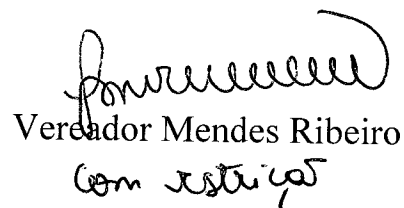 Vereador Mendes Ribeiro
com restrição